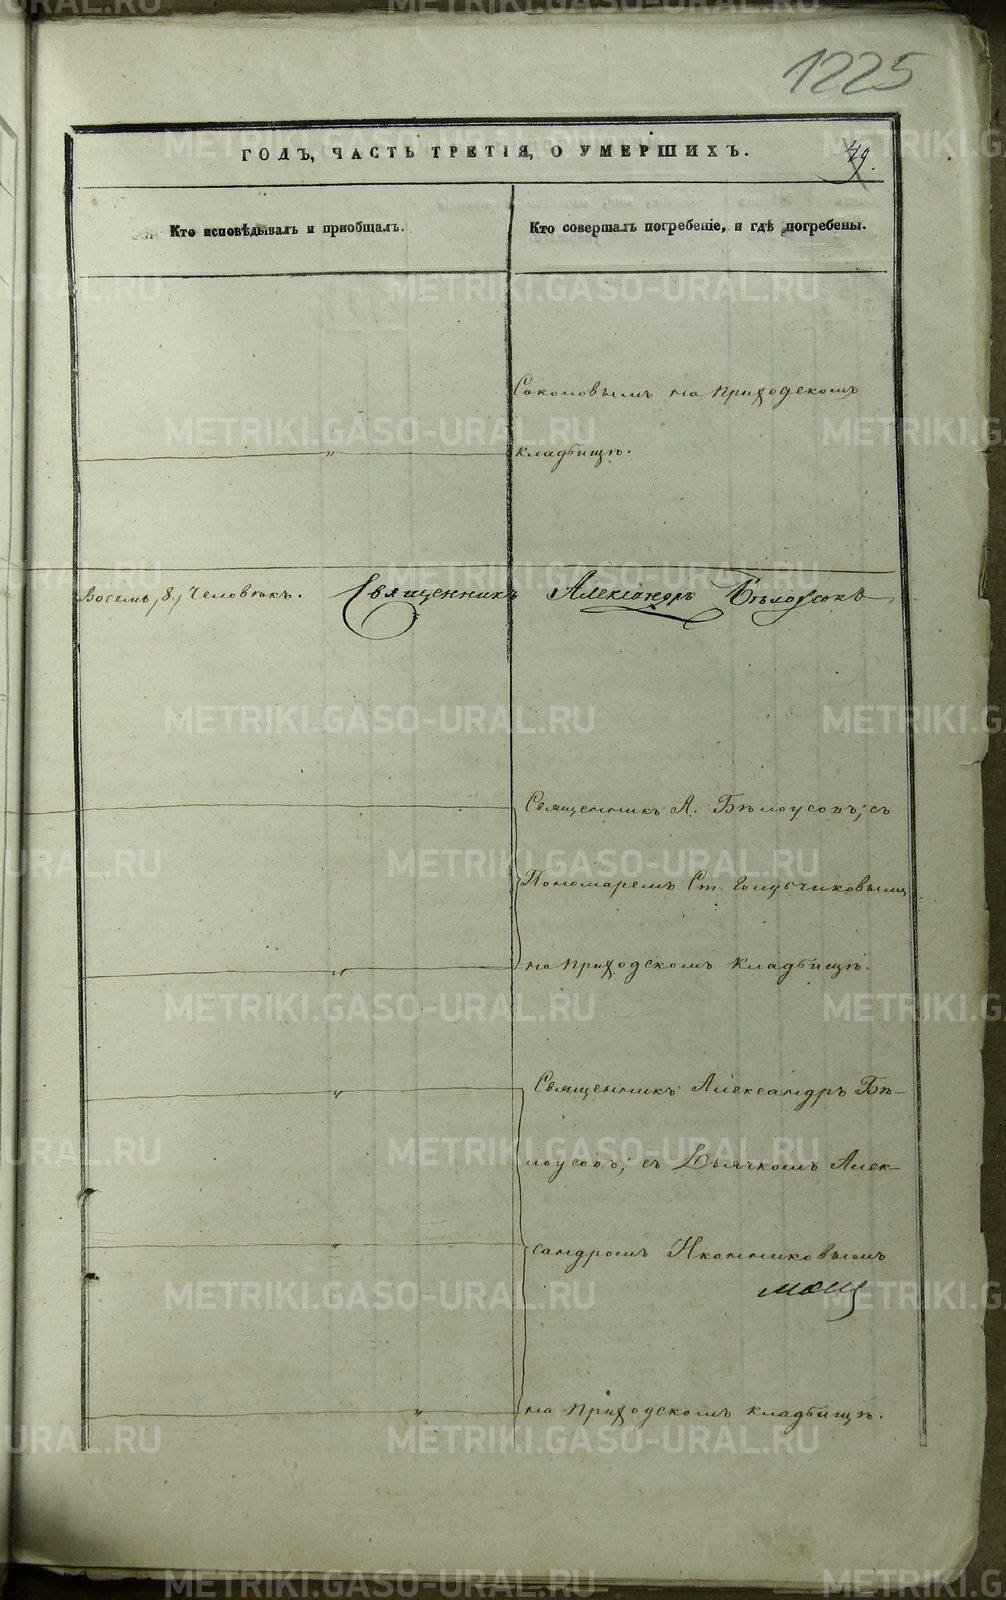 1225
ГОДЪ, ЧАСТЬ ТРЕТІЯ, О УМЕРШИХЪ.
Кто исповѣдывалъ и приобщалъ.
Кто совершалъ погребеніе, и гдѣ погребены.
Соколовымъ на приходскомъ
кладбищѣ.
Восемь, 8, человѣкъ. Священникъ Александръ Бѣлоусовъ
Священникъ А. Бѣлоусовъ; съ
Пономаремъ Ст. Голубчиковымъ
на приходскомъ кладбищѣ.
Священникъ Александръ Бѣ-
лоусовъ; съ Дьячкомъ Алек-
сандромъ Иконниковымъ
на приходскомъ кладбищѣ.
METRIKI.GASO-URAL.RU